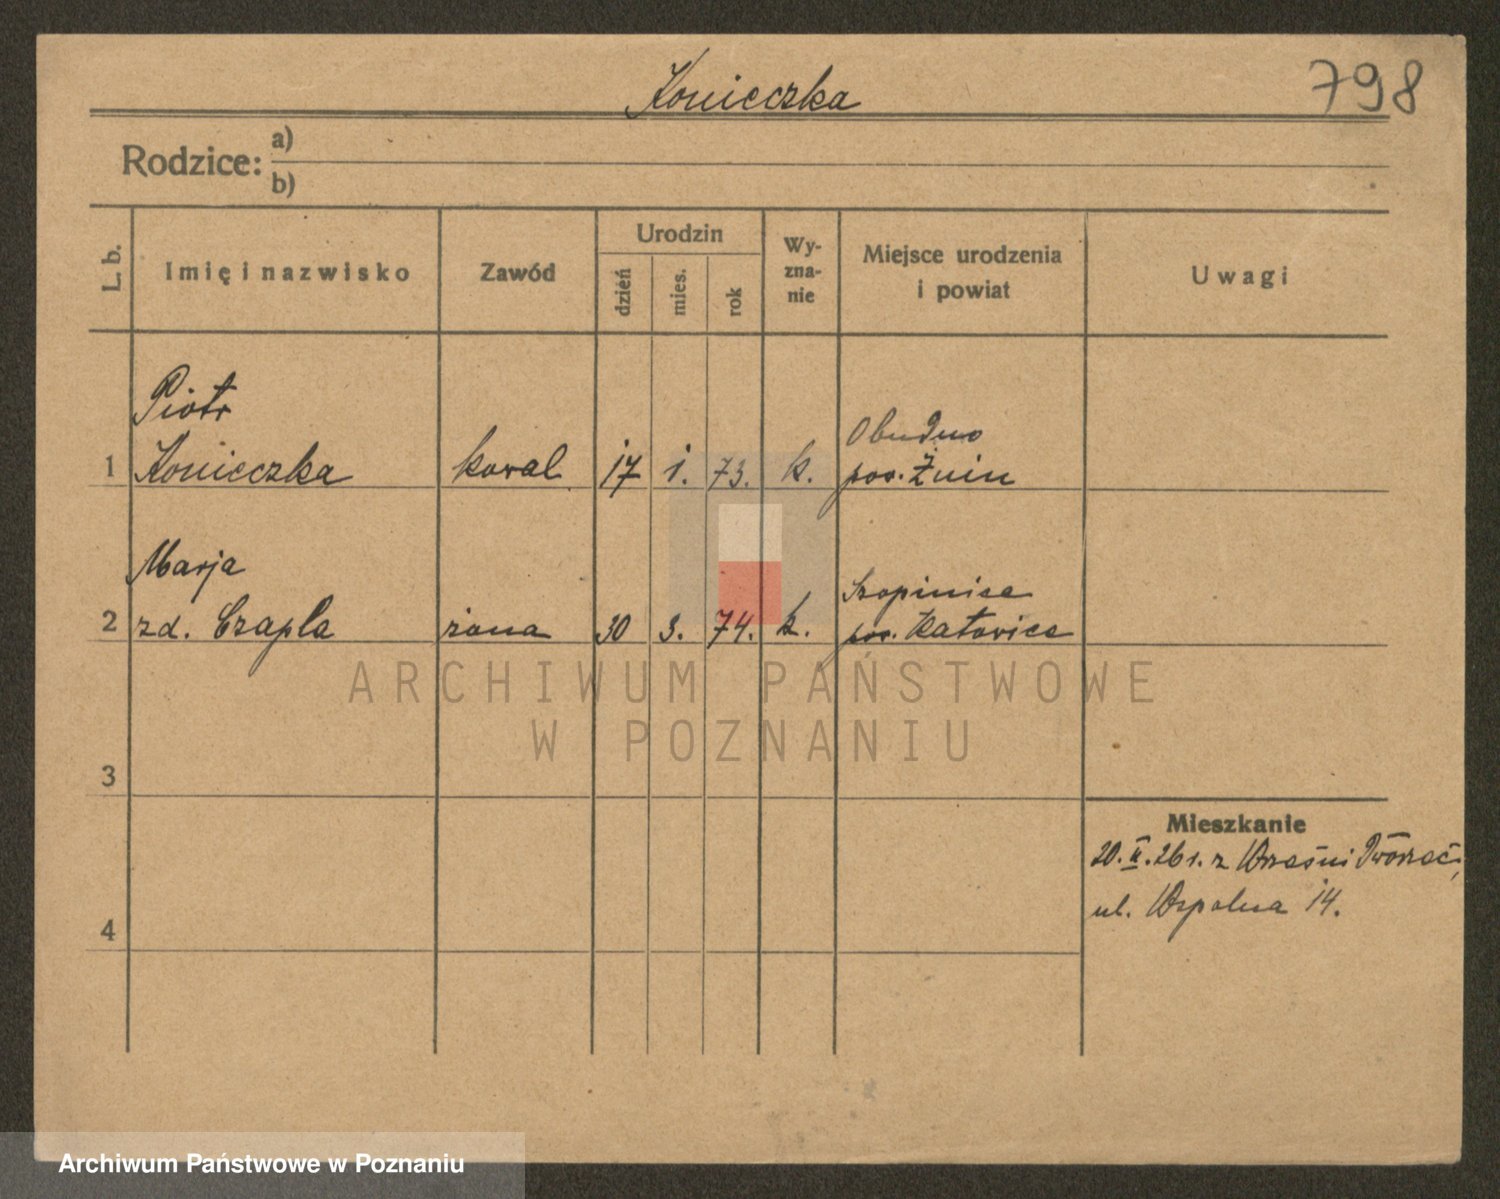 Konieczka
798
Rodzice:
a)
b)
L. b.
Imię i nazwisko
Zawód
Urodzin
dzień
mies.
rok
Wy-
zna-
nie
Miejsce urodzenia
i powiat
Uwagi
Piotr
1 Konieczka kowal 17 1. 73. k.
Obudno
pow. Żnin
Marja
2 zd. Czapla żona 30 3. 74. k.
Szopinice
pow. Katowice
ARCHIWUM PAŃSTWOWE
W POZNANIU
3
Mieszkanie
20. II. 26 r. z Wrześni Dworzec,
ul. Wspólna 14.
4
Archiwum Państwowe w Poznaniu